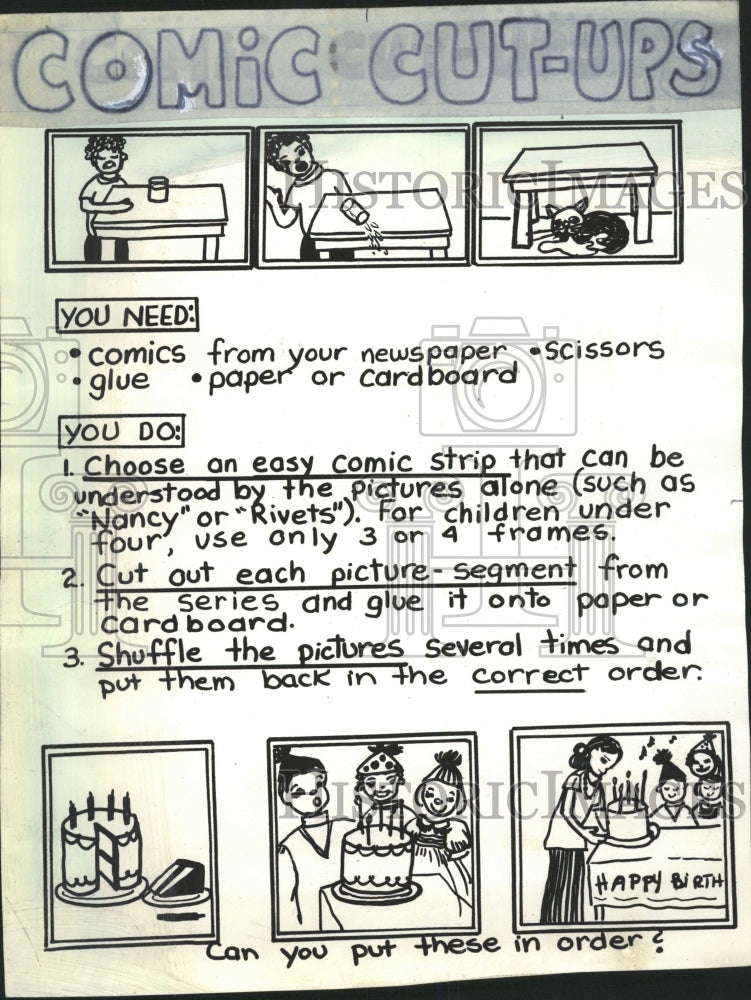 COMIC CUT-UPS
YOU NEED:
• comics from your newspaper • scissors
• glue • paper or cardboard
YOU DO:
1. Choose an easy comic strip that can be
understood by the pictures alone (such as
"Nancy" or "Rivets"). For children under
four, use only 3 or 4 frames.
2. Cut out each picture-segment from
the series and glue it onto paper or
cardboard.
3. Shuffle the pictures several times and
put them back in the correct order.
HAPPY BIRTH
Can you put these in order?
HISTORICIMAGES
HISTORICIMAGES